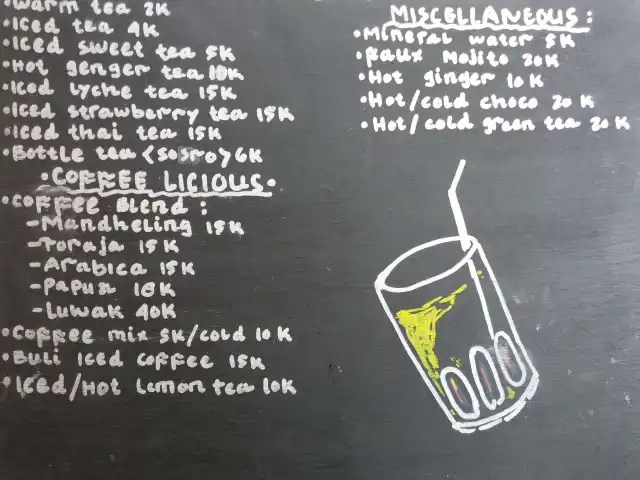 •Warm tea 2K
•Iced tea 4K
•Iced sweet tea 5K
•Hot genger tea 10K
•Iced lyche tea 15K
•Iced strawberry tea 15K
•Iced thai tea 15K
•Bottle tea <sosro> 6K
•COFFEE LICIOUS•
•COFFEE BLEND :
-Mandheling 15K
-Toraja 15K
-Arabica 15K
-Papua 18K
-Luwak 40K
•Coffee mix 5K/cold 10K
•Buli Iced coffee 15K
•Iced/Hot Lemon tea 10K
MISCELLANEOUS :
•Mineral water 5K
•Faux Mojito 20K
•Hot ginger 10K
•Hot/cold choco 20K
•Hot/cold green tea 20K